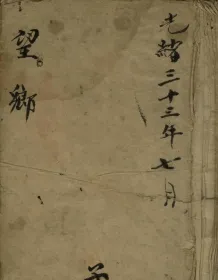 光緒三十三年七月
望鄉